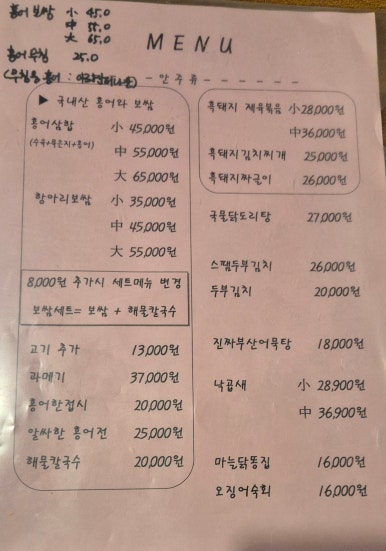 홍어보쌈 小 45.0
中 55.0
大 65.0
홍어무침 25.0
MENU
- 안주류 - - - - - -
▶ 국내산 홍어와 보쌈
홍어삼합 小 45,000원
(수육+묵은지+홍어)
中 55,000원
大 65,000원
항아리보쌈 小 35,000원
中 45,000원
大 55,000원
8,000원 추가시 세트메뉴 변경
보쌈세트= 보쌈 + 해물칼국수
고기 추가 13,000원
과메기 37,000원
홍어한접시 20,000원
알싸한 홍어전 25,000원
해물칼국수 20,000원
흑돼지 제육볶음 小 28,000원
中 36,000원
흑돼지김치찌개 25,000원
흑돼지짜글이 26,000원
국물닭도리탕 27,000원
스팸두부김치 26,000원
두부김치 20,000원
진짜부산어묵탕 18,000원
낙곱새 小 28,900원
中 36,900원
마늘닭똥집 16,000원
오징어숙회 16,000원